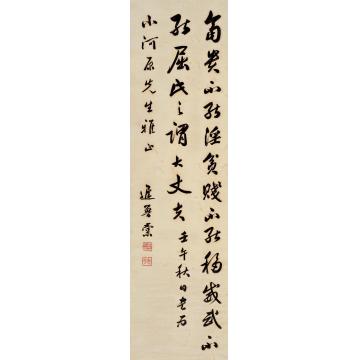 富貴不能淫貧賤不能移威武不
能屈此之謂大丈夫 壬午秋日書為
小河原先生雅正